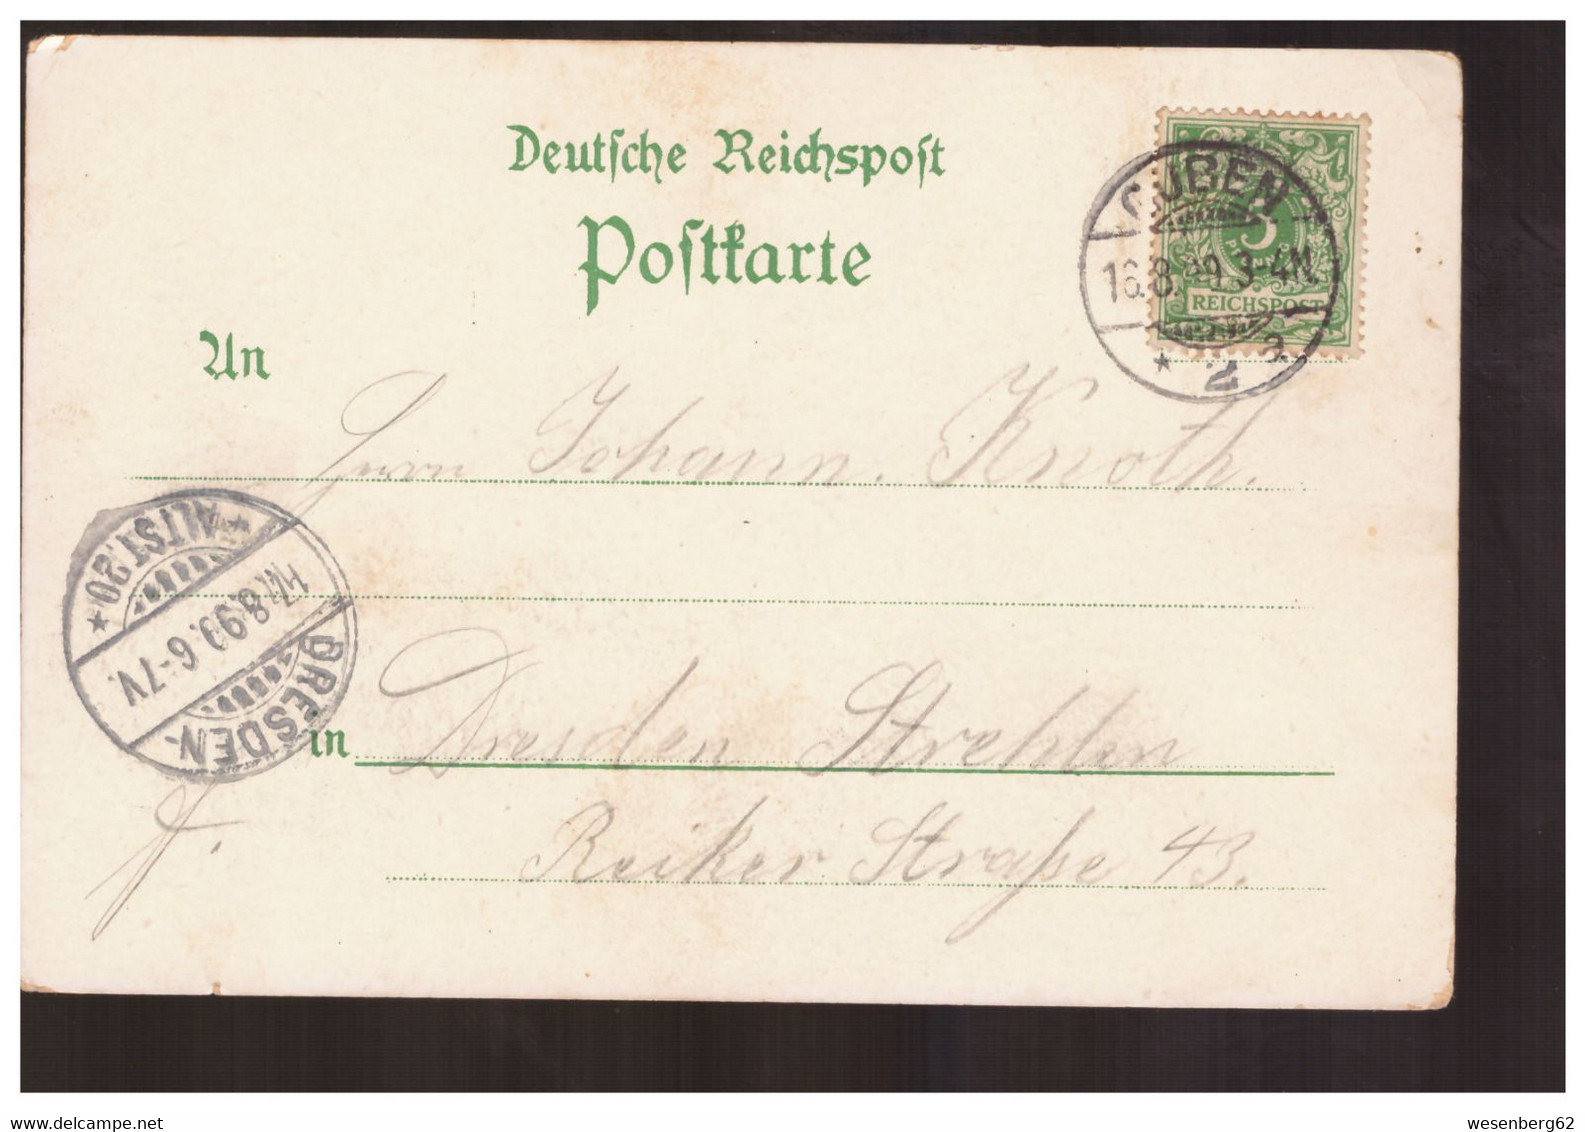 Deutsche Reichspost
Postkarte
GUBEN
16.8.99. 3-4N
* 2 a.
5
PFENNIG
REICHSPOST
An
Herrn Johann Knoth.
DRESDEN-
17.8.99. 6-7V.
* ALTST. 20 *
in Dresden Strehlen
Reiker Straße 43.
wesenberg62